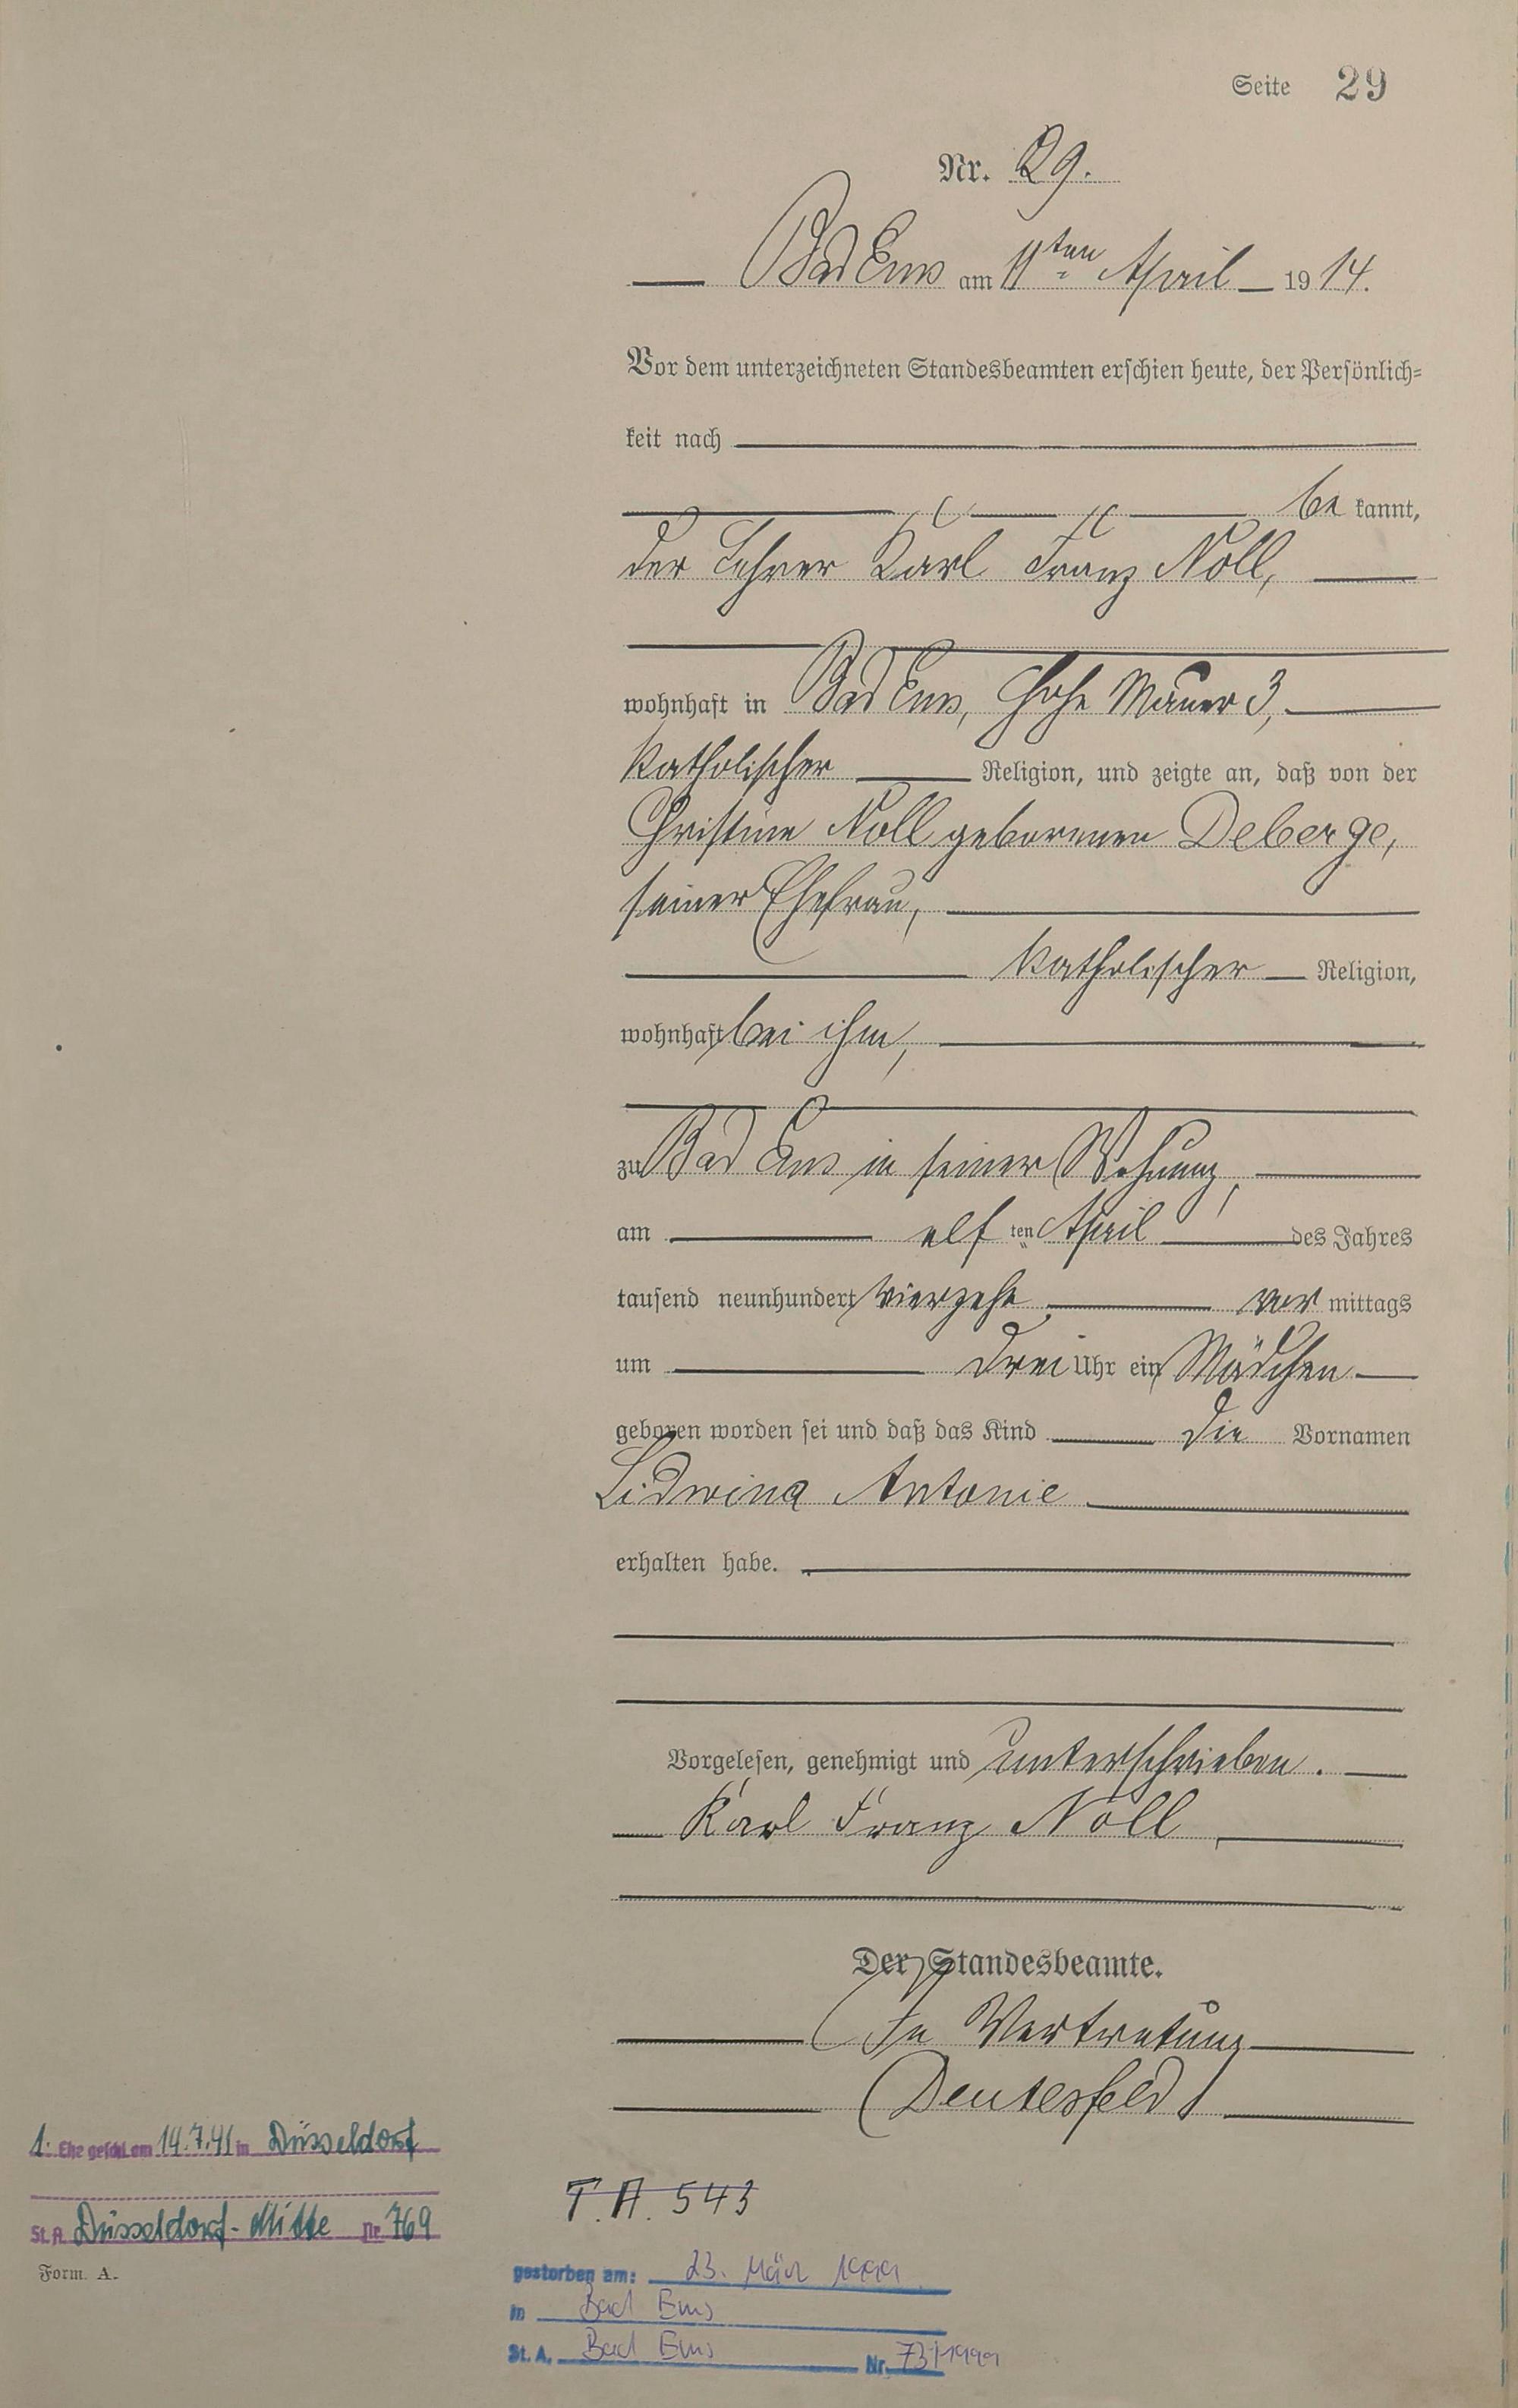 Seite 29
Nr. 29.
Bad Ems am 11ten April 1914.
Vor dem unterzeichneten Standesbeamten erschien heute, der Persönlich=
keit nach
be kannt,
der Lehrer Karl Franz Noll,
wohnhaft in Bad Ems, Hohe Mauer 3,
katholischer Religion, und zeigte an, daß von der
Christine Noll geborenen Deberge,
seiner Ehefrau,
katholischer Religion,
wohnhaft bei ihm,
zu Bad Ems in seiner Wohnung,
am elf ten April des Jahres
tausend neunhundert vierzehn vor mittags
um drei Uhr ein Mädchen
geboren worden sei und daß das Kind die Vornamen
Lidwina Antonie
erhalten habe.
Vorgelesen, genehmigt und unterschrieben.
Karl Franz Noll
Der Standesbeamte.
In Vertretung
Deutesfeld
1. Ehe geschl. am 14.7.41 in Düsseldorf
St. A. Düsseldorf-Mitte Nr. 769
Form. A.
T.A. 543
gestorben am: 23. März 1999
in Bad Ems
St. A. Bad Ems Nr. 73/1999